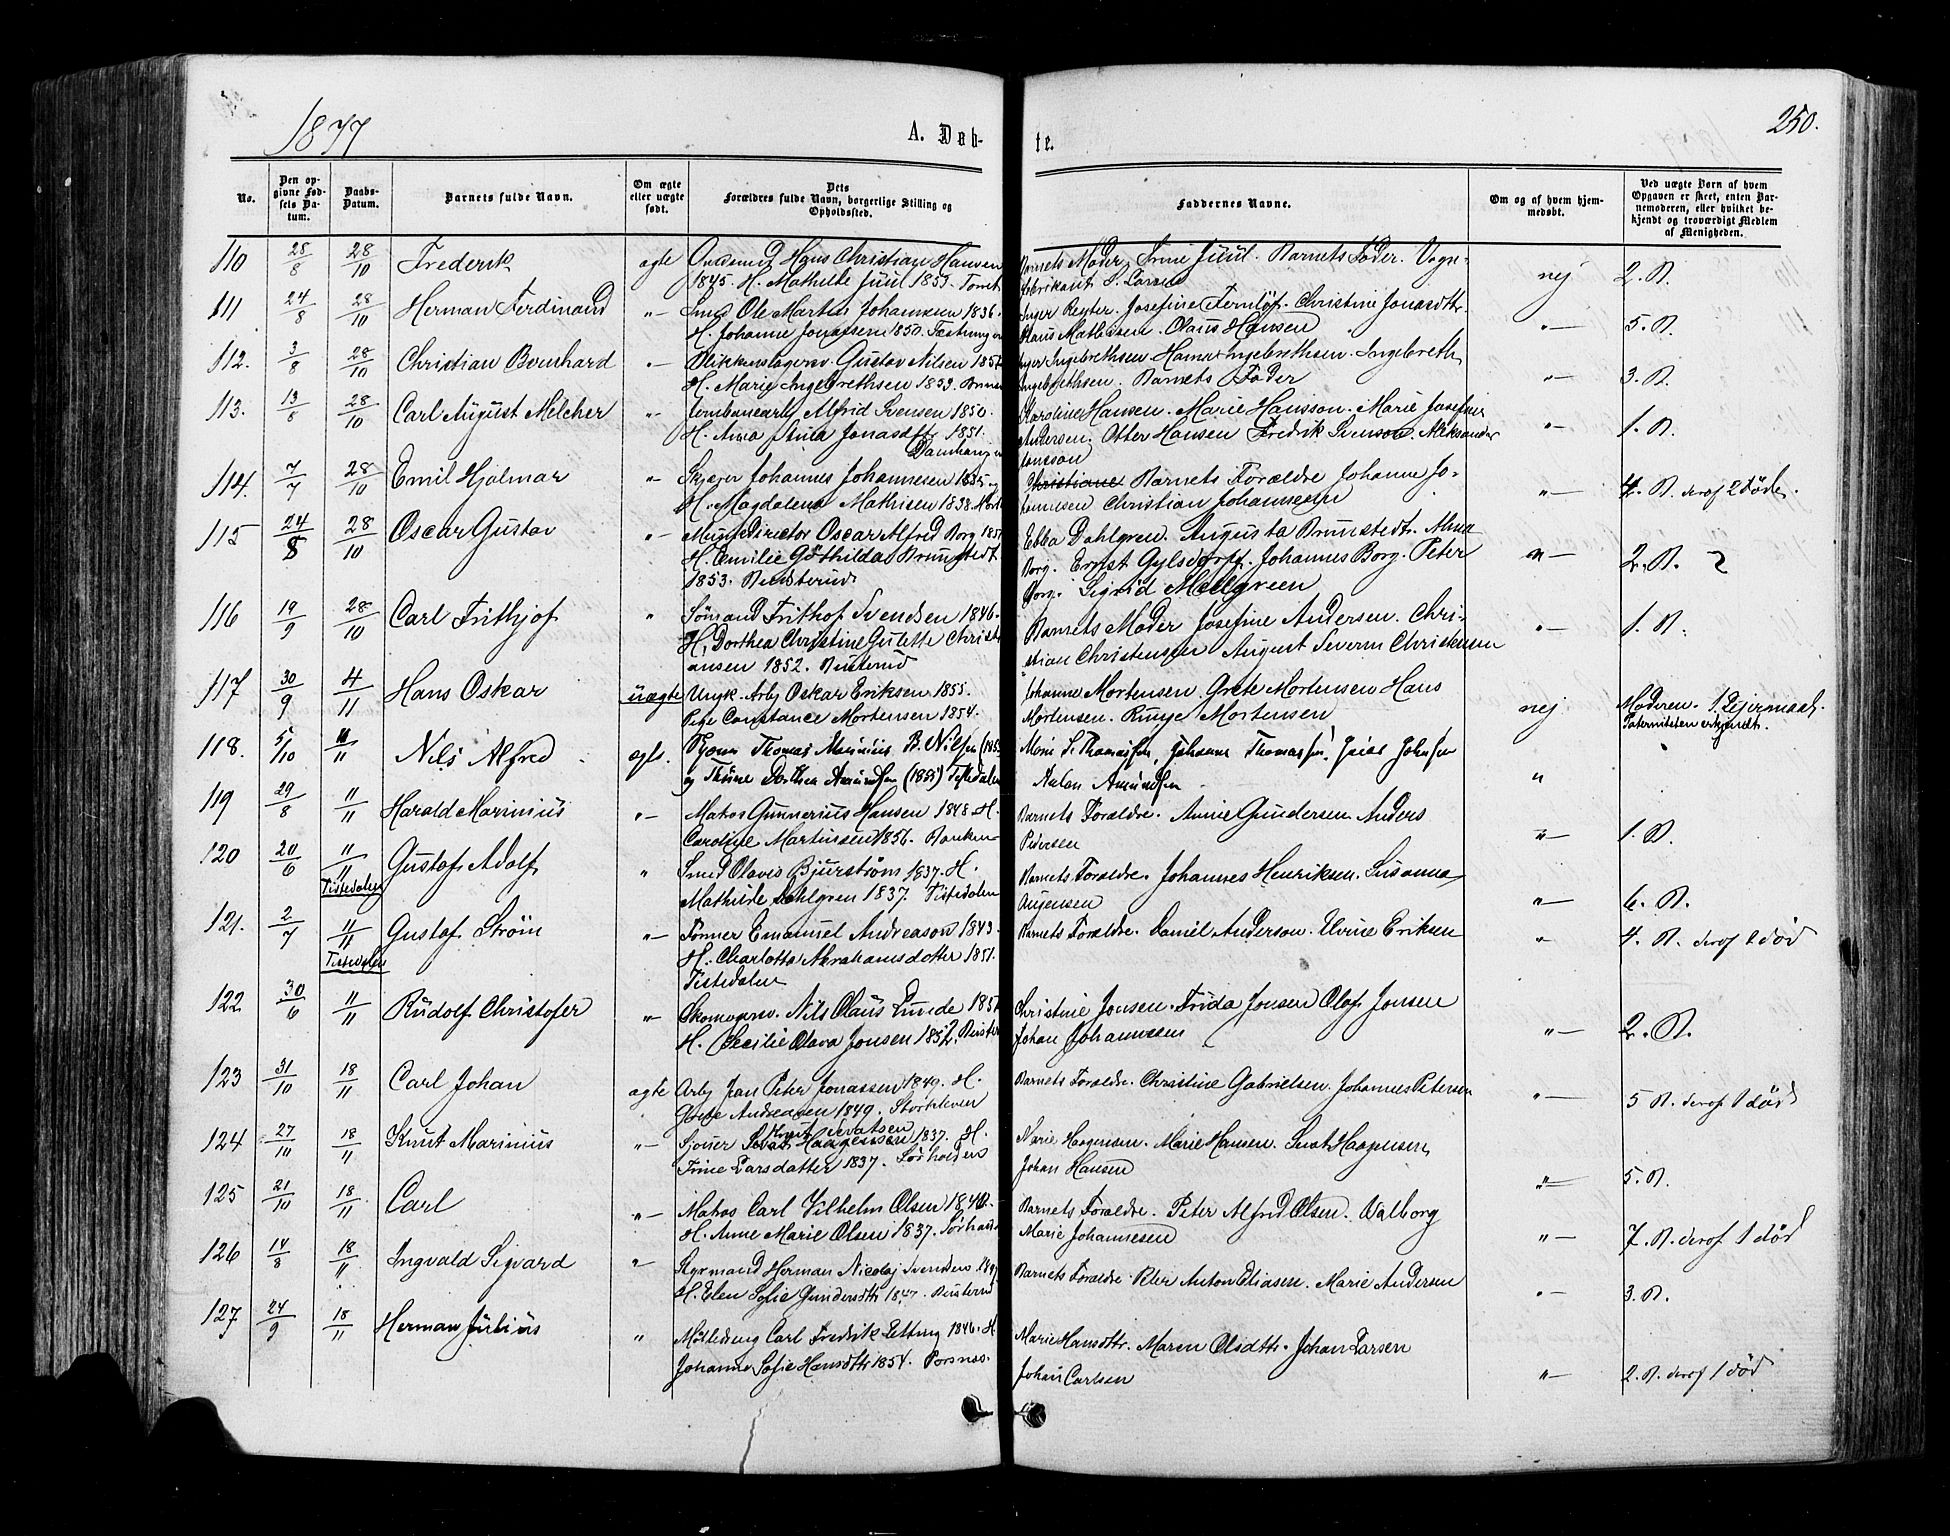 1877
A. Døb-
te.
250.
No.
Den op-
givne Fød-
sels Da-
tum.
Daabs-
Datum.
Barnets fulde Navn.
Om ægte
eller uægte
født.
Dets
Forældres fulde Navn, borgerlige Stilling og
Opholdssted.
Faddernes Navne.
Om og af hvem hjem-
medøbt.
Ved uægte Børn af hvem
Opgaven er skeet, enten Bar-
nemoderen, eller hvilket be-
kjendt og troværdigt Medlem
af Menigheden.
110 28/8 28/10 Frederik ægte Hans Christian Hansen Barnets Moder. Trine Juul. Barnets Fader. Vogn-
1845. H. Mathilde Juul 1853. fabrikant S. Larsen nej 2. B.
111 24/8 28/10 Herman Ferdinand "— Smed Ole Martin Johannesen 1836. Inger Reyter. Josefine Fernløf. Christine Jonasdtr.
H. Johanne Jonassen 1850. Klaus Mathisen. Olaus Hansen "— 5. B.
112. 3/8 28/10 Christian Bernhard "— Blikkenslagersv. Gustav Nilsen Inger Ingebrethsen Hanna Ingebrethsen. Ingebreth
H. Marie Ingebrethsen 1853. Ingebrethsen. Barnets Fader "— 3. B.
113. 13/8 28/10 Carl August Melcher "— Jernbanearb. Alfrid Svensen 1850. Karoline Hansen. Marie Hansson. Marie Josefine
H. Anna Stina Jonasdtr 1851. Andersen. Otter Hansen Fredrik Svenson. Aleksander "— 1. B.
Jonsson
114. 7/7 28/10 Emil Hjalmar "— Johannes Johannesen 1835 og Christiane Barnets Forældre Johanne Jo-
H. Magdalena Mathisen 1838. Christian Johannesen "— 4. B. deraf 2 døde.
115 24/8 28/10 Oscar Gustav "— Musikdirector Oscar Alfred Borg Ebba Dahlgren. Augusta Brunstedt. Alma
H. Emilie Gothilda Brunstedt Borg. Ernst Gylsdorff. Johannes Borg. Peter "— 2. B. 2
1853. Busterud Borg. Sigrid Mellgreen
116 19/9 28/10 Carl Frithjof " Sømand Frithof Svendsen 1846. Barnets Moder Josefine Andersen. Chri-
H. Dorthea Christine Gulette Christi- stian Christensen August Severin Christensen "— 1. B.
ansen 1852. Busterud
117 30/9 4/11 Hans Oskar uægte Ungk. Arb. Oskar Eriksen 1855. Johanne Mortensen. Grete Mortensen Hans
Pige Constance Mortensen 1854. Mortensen. Mortensen nej Moderen. 1. Leiermaal.
Paterniteten erkjendt.
118. 5/10 11/11 Nils Alfred. ægte. Thomas Marinius B. Nilsen Thomassen, Johanne Thomassen,
og Dorthea Amundsen (1855) Tistedalen Anton Amundsen "
119 29/8 11/11 Harald Marinius "— Matros Gunnerius Hansen 1848 H. Barnets Forældre. Annie Gundersen Anders
Caroline Martinsen 1856. Banken Pedersen "— 1. B.
120 20/6 11/11 Gustaf Adolf " Smed Olaves Bjurstrøm 1837. H. Barnets Forældre. Johannes Henriksen. Susanna
Tistedalen Mathilde Dahlgren 1837. Tistedalen "— 6. B.
121. 2/7 11/11 Gustaf Strøm "— Emanuel Andreason 1843 Barnets Forældre. Daniel Anderson. Eriksen " 4. B. deraf 1 død
Tistedalen H. Charlotta Abrahamsdotter 1851.
Tistedalen
122 30/6 11/11 Rudolf Christofer "— Skomagersv. Nils Olaus Lunde Christine Jonsen. Frida Jonsen Olaf Jonsen
H. Cecilie Olava Jonsen 1852. Johan Johannesen "— 2. B.
123 31/10 18/11 Carl Johan ægte Arb. Jean Peter Jonassen 1849. H. Barnets Forældre. Christine Gabrielsen. Johannes Petersen
Grete Andreasen 1849. "— 5 B. deraf 1 død
124 27/10 18/11 Knut Marinius "— Haagensen 1837. H. Marie Haagensen. Marie Hansen. Haagensen
Trine Larsdatter 1837. Johan Hansen "— 5. B.
125 21/10 18/11 Carl "— Matros Carl Vilhelm Olsen 1840. Barnets Forældre. Peter Alfred Olsen. Valborg
H. Anne Marie Olsen 1837. Marie Johannesen "— 7. B. deraf 1 død
126 14/8 18/11 Ingvald Sigvard "— Styrmand Herman Nicolaj Svendsen Barnets Forældre. Peter Anton Eliasen. Marie Andersen
H. Elen Sofie Gundersdtr 1847. Busterud "— 3. B.
127 24/9 18/11 Herman Julius " Carl Fredrik 1846. H Marie Hansdtr. Maren Olsdtr. Johan Larsen
Johanne Sofie Hansdtr 1854. Porsnes. Johan Carlsen "— 2. B. deraf 1 død